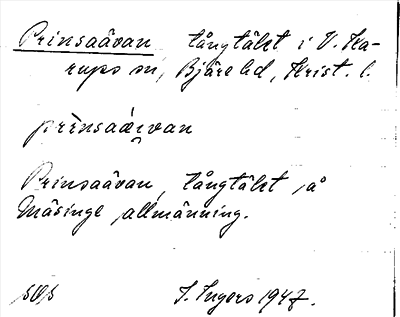 Prinsaåvan tångtäkt i V. Ka-
rups sn, Bjäre hd, Krist. l.
prìnsaávan
Prinsaåvan, tångtäkt å
Mäsinge allmänning.
I. Ingers 1947.